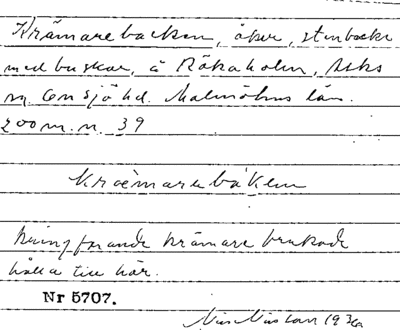 Krämarebacken, åker, stenbacke
med buskar, å Rökaholm, Asks
sn. Onsjö hd. Malmöhus län.
200 m. n. 39
kræmarebàken
Kringfarande krämare brukade
hålla till här.
Nr 5707.
1934